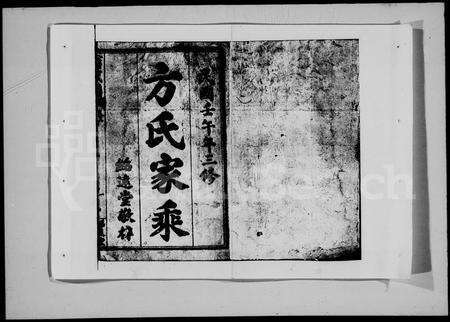 民國壬午年三修
方氏家乘
遠堂敬梓